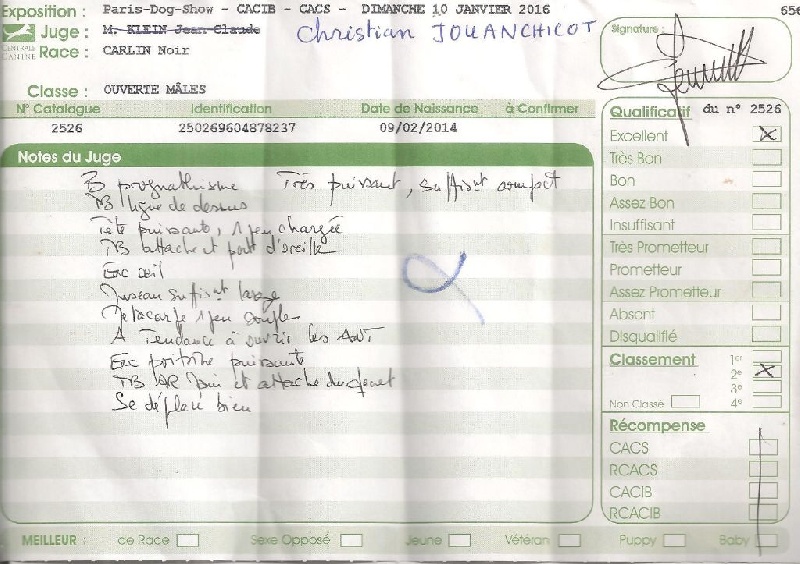 Exposition : Paris-Dog-Show - CACIB - CACS - DIMANCHE 10 JANVIER 2016 656
Juge : M. KLEIN Jean-Claude Christian JOUANCHICOT
CENTRALE CANINE
Race : CARLIN Noir
Signature :
Classe : OUVERTE MÂLES
N° Catalogue Identification Date de Naissance à Confirmer
2526 250269604878237 09/02/2014
Qualificatif du n° 2526
Excellent
Très Bon
Bon
Assez Bon
Insuffisant
Très Prometteur
Prometteur
Assez Prometteur
Absent
Disqualifié
Classement 1er
2e
3e
Non Classé 4e
Récompense
CACS
RCACS
CACIB
RCACIB
Notes du Juge
B prognathisme Très puissant, suffist compact
TB ligne de dessus
Tête puissante, 1 peu chargée
TB attache et port d'oreille
Exc œil
Museau suffist large
Métacarpe 1 peu souple
A Tendance à ouvrir les ANT
Exc poitrine puissante
TB AR train et attache du fouet
Se déplace bien
MEILLEUR : ce Race Sexe Opposé Jeune Vétéran Puppy Baby